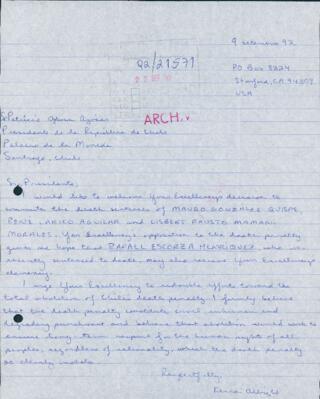 9 setiembre 92
92/21571
PO Box 8224
Stanford, CA 94309
USA
ARCH.
S. Patricio Aylwin Azócar
Presidente de la República de Chile
Palacio de la Moneda
Santiago, Chile
Sr. Presidente,
I would like to welcome Your Excellency's decision to
commute the death sentences of MAURO GONZALES QUISPE,
RENE LARICO AGUILAR and LISBERT FAUSTO MAMANI
MORALES. Your Excellency's opposition to the death penalty
gives me hope that RAFAEL ESCORZA HENRIQUEZ, who was
recently sentenced to death, may also receive Your Excellency's
clemency.
I urge Your Excellency to redouble efforts toward the
total abolition of Chile's death penalty. I firmly believe
that the death penalty constitutes cruel, inhuman and
degrading punishment and believe that abolition would work to
ensure long term respect for the human rights of all
peoples, regardless of nationality, which the death penalty
so clearly violates.
Respectfully,